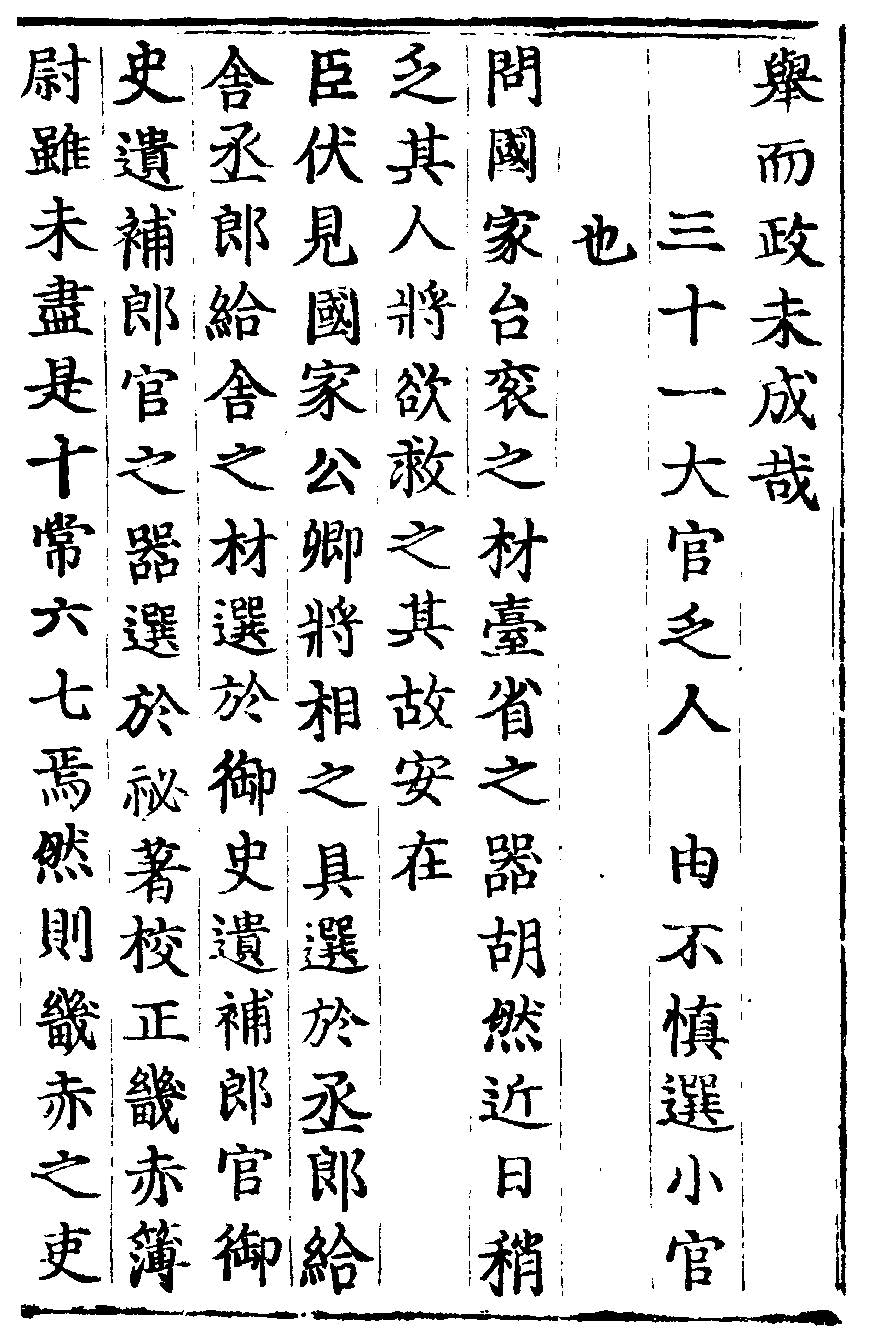 舉而政未成哉
三十一大官乏人　由不慎選小官
也
問國家台衮之材臺省之器胡然近日稍
乏其人將欲救之其故安在
臣伏見國家公卿將相之具選於丞郎給
舍丞郎給舍之材選於御史遺補郎官御
史遺補郎官之器選於祕著校正畿赤簿
尉雖未盡是十常六七焉然則畿赤之吏